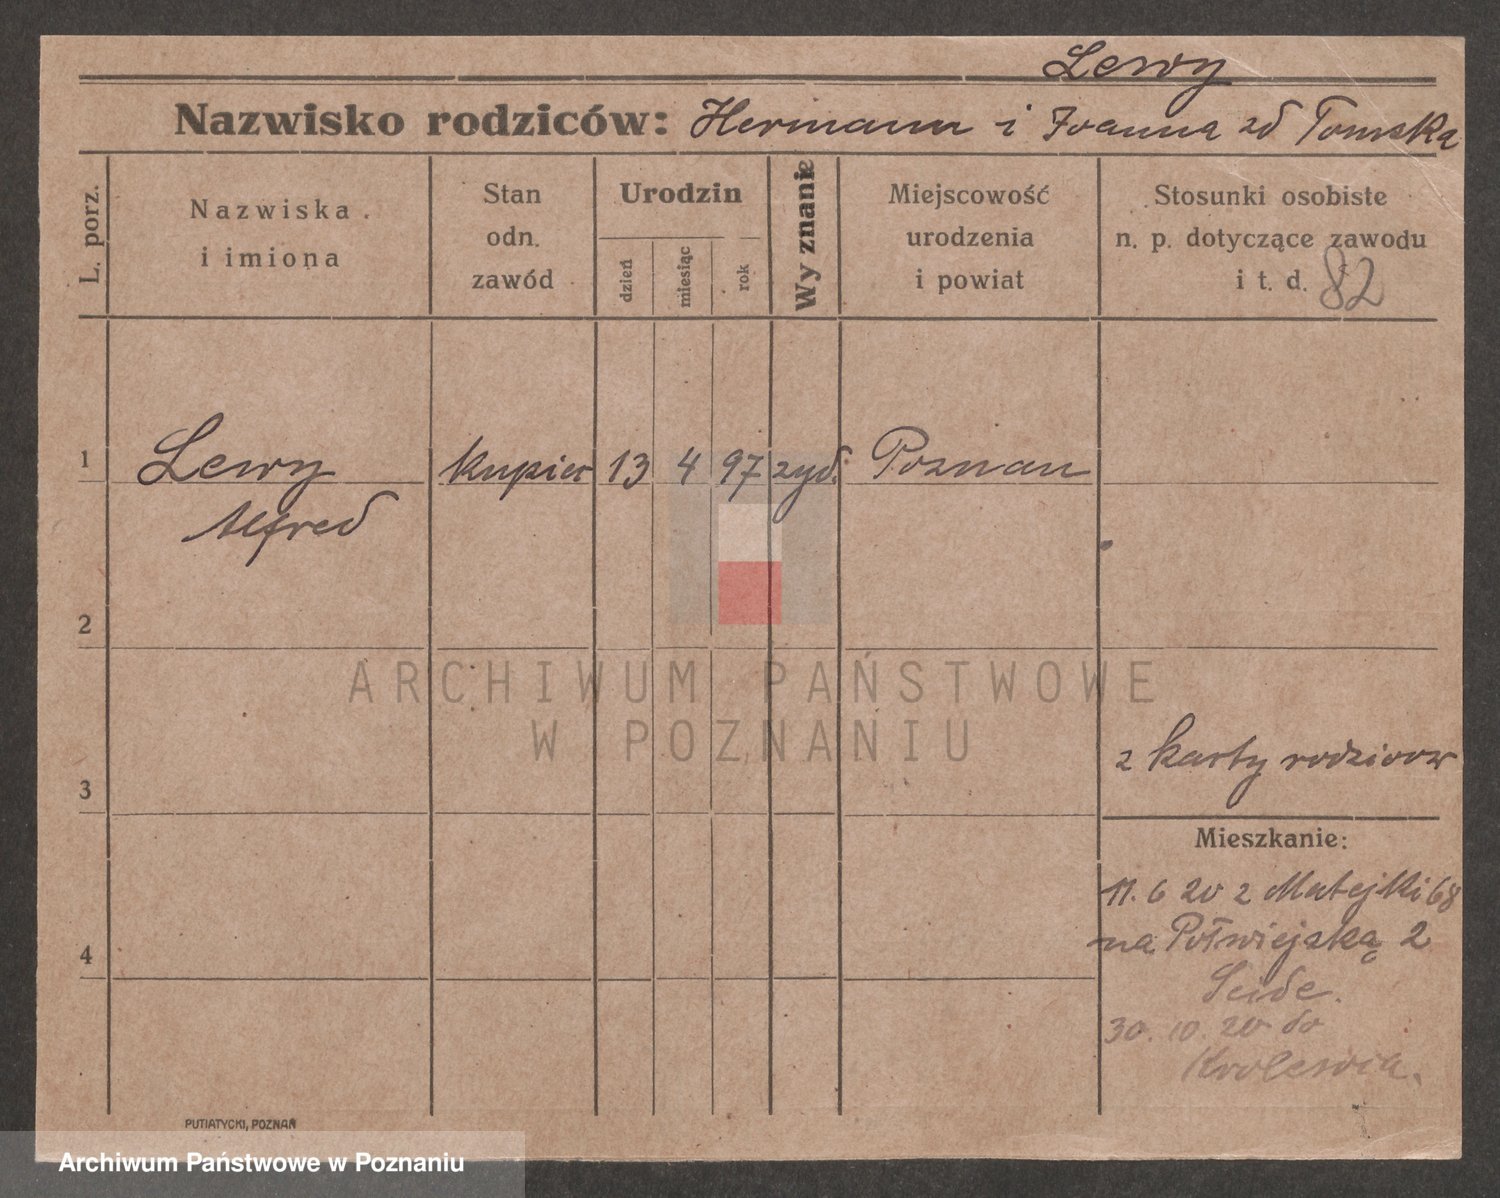 Lewy
Nazwisko rodziców: Hermann i Joanna zd Tomska
L. porz.
Nazwiska
i imiona
Stan
odn.
zawód
Urodzin
dzień
miesiąc
rok
Wyznanie
Miejscowość
urodzenia
i powiat
Stosunki osobiste
n. p. dotyczące zawodu
i t. d. 82
1 Lewy kupiec 13 4 97 żyd. Poznan
Alfred
2
ARCHIWUM PAŃSTWOWE
W POZNANIU
z karty rodzicow
3
Mieszkanie:
11. 6 20 z Matejki 68
na Półwiejską 2
4
30. 10. 20 do
Krolewca.
PUTIATYCKI, POZNAŃ
Archiwum Państwowe w Poznaniu